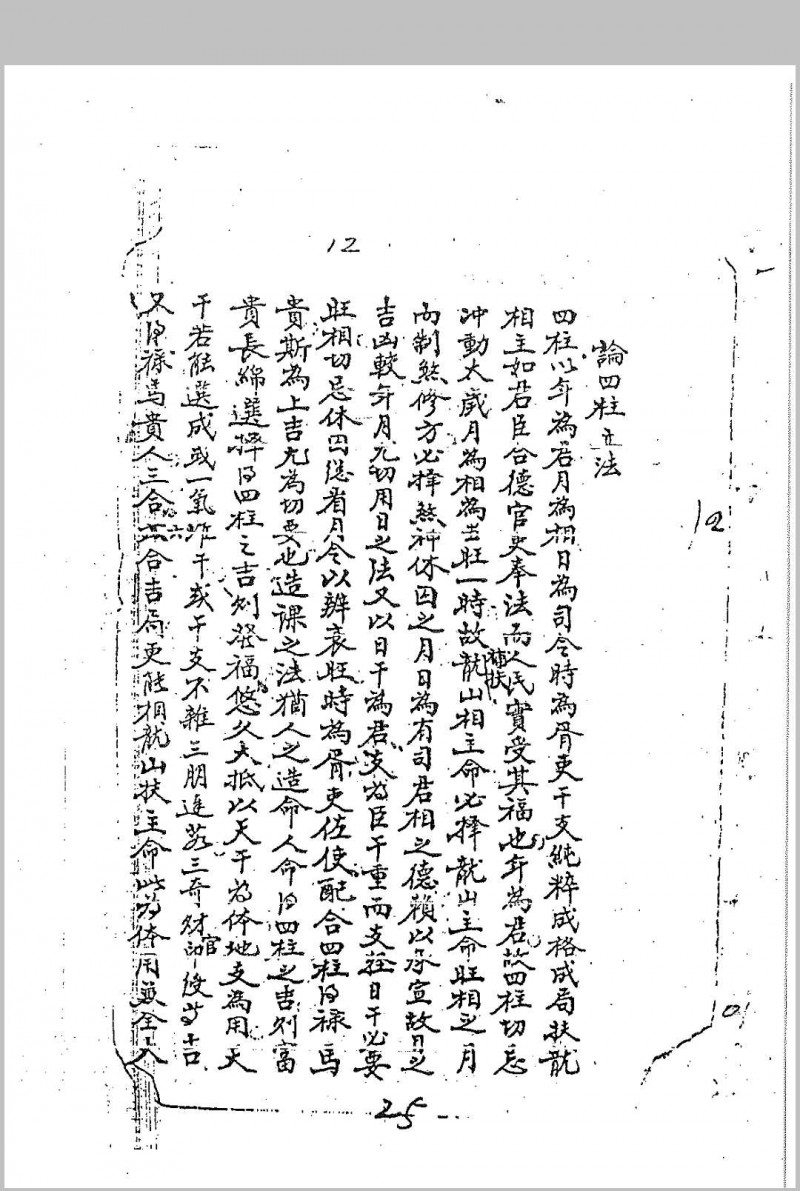 12
論四柱立法
四柱以年為君月為相日為司令時為胥吏干支純粹成格成局扶龍
相主如君臣合德官吏奉法而人民實受其福也年為君故四柱切忌
沖動太歲月為相為主旺一時故龍山相主命必擇龍山主命旺相之月
補扶
而制煞修方必擇煞神休囚之月日為有司君相之德賴以承宣故日之
吉凶較年月尤切用日之法又以日干為君支為臣干重而支輕日干必要
旺相切忌休囚總看月令以辨衰旺時為胥吏佐使配合四柱得祿馬
貴斯為上吉尤為切要也造課之法猶人之造命人命得四柱之吉則富
貴長綿選擇得四柱之吉則發福悠久大抵以天干為体地支為用天
干若能選成或一氣干或干支不雜三朋進三奇財官印等吉
又得祿馬貴人三合六合吉局更能相龍山扶主命此為体用並全人
12
101
25